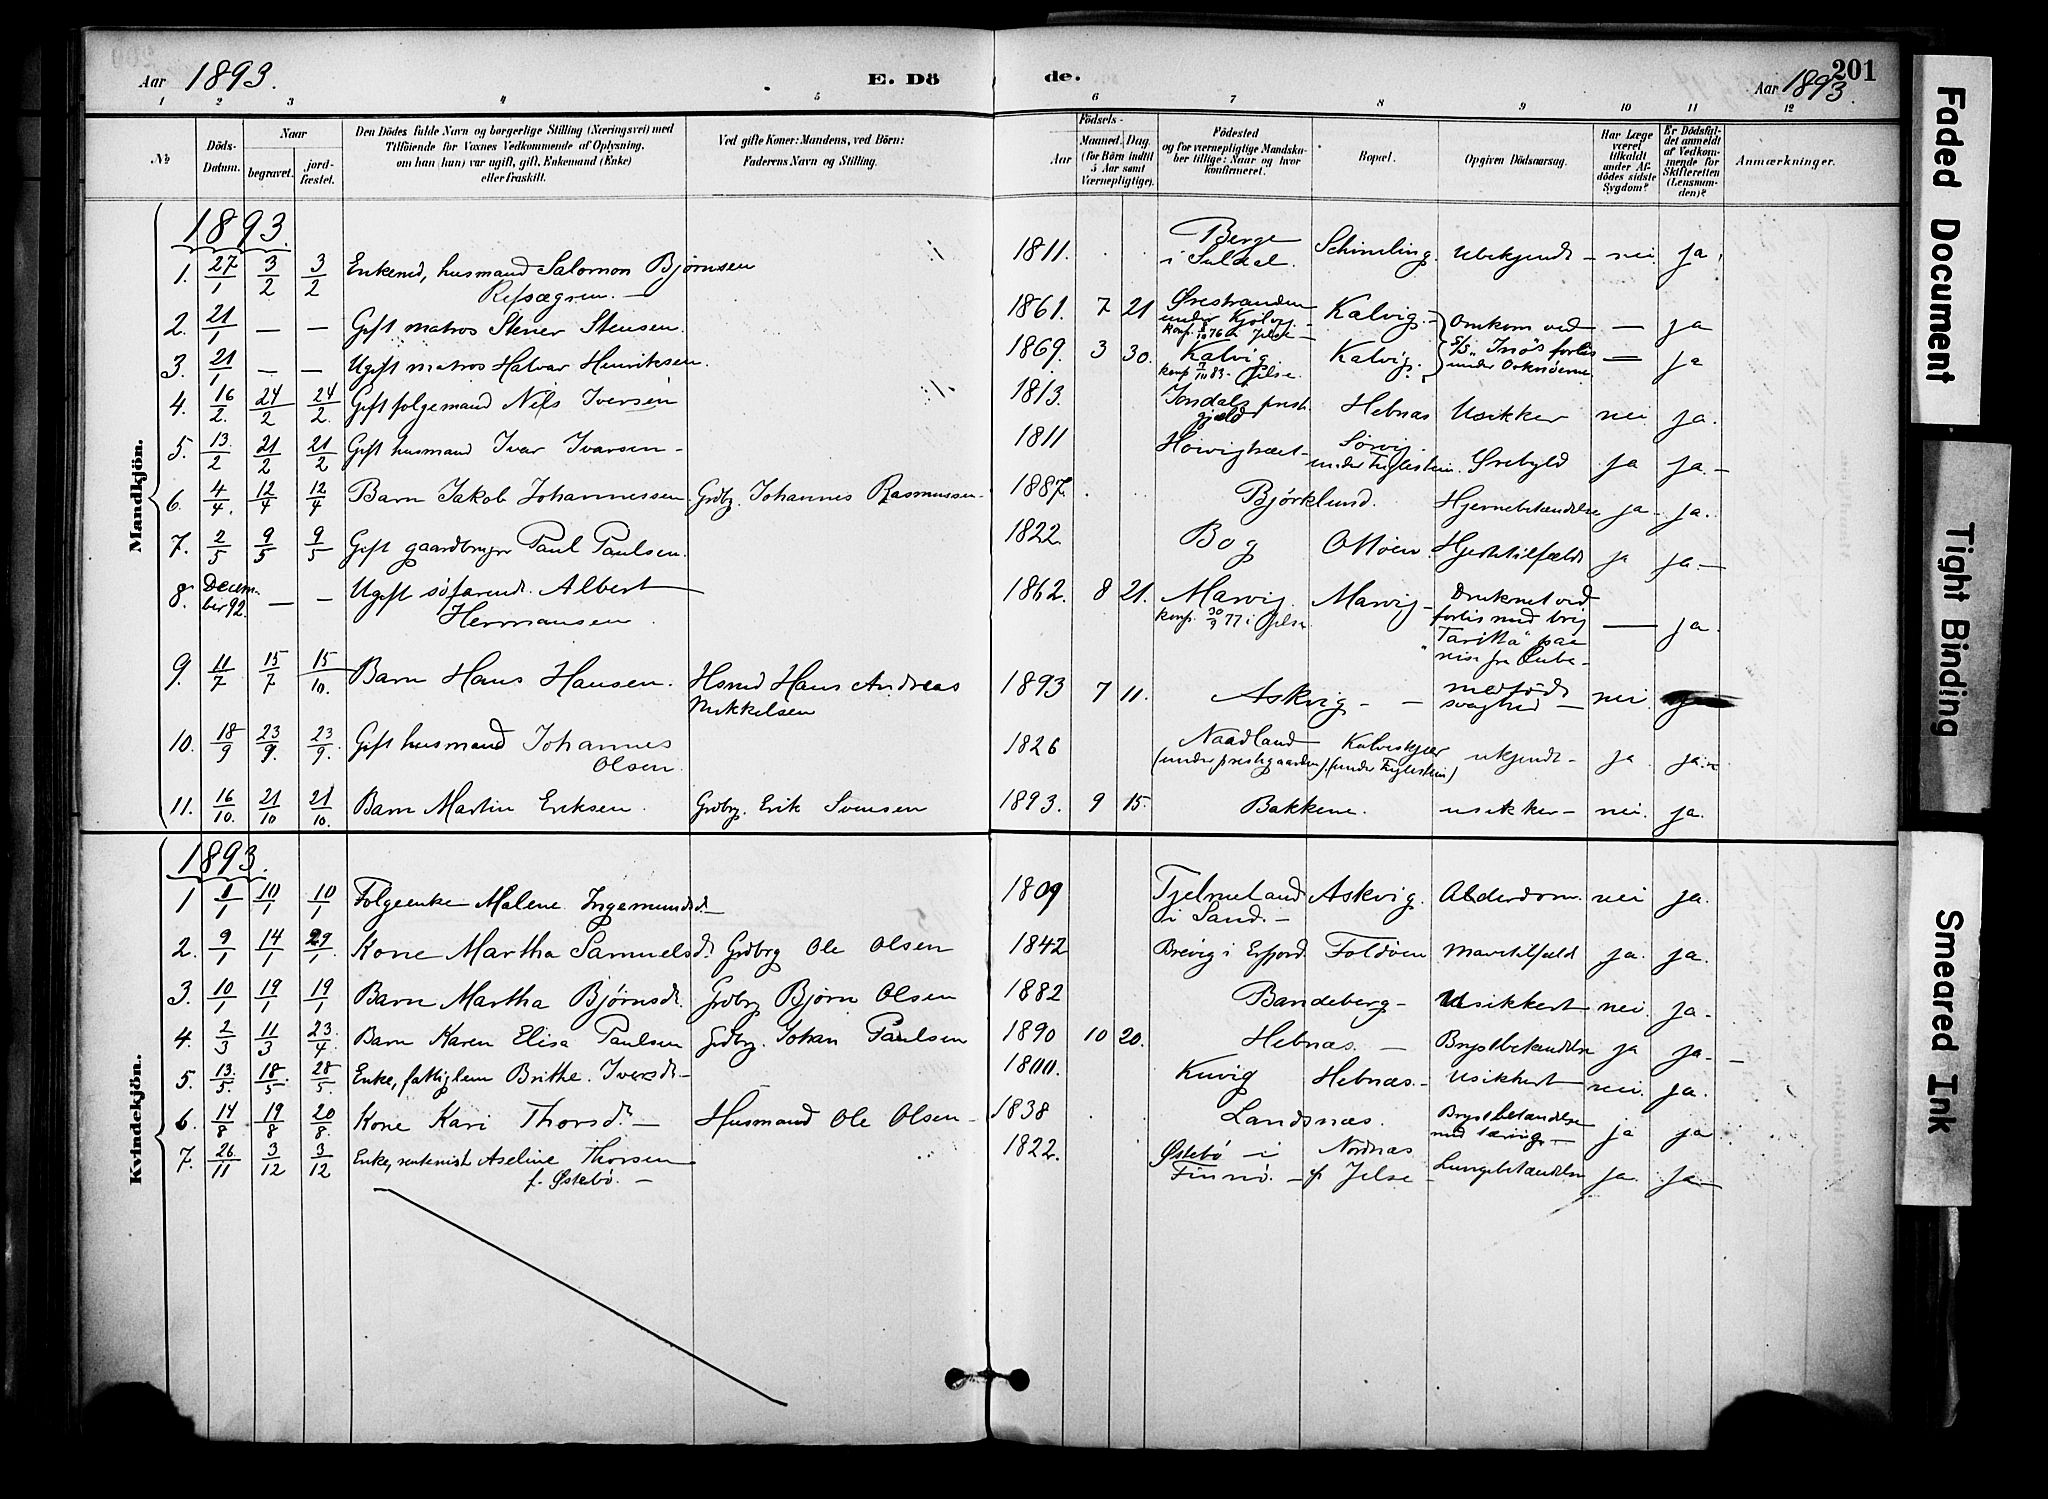 Aar 1893.
E. Dö
de.
201
Aar 1893.
1 2 3 4 5 6 7 8 9 10 11 12
No
Döds-
Datum.
Naar
begravet.
jord-
fæstet.
Den Dödes fulde Navn og borgerlige Stilling (Næringsvei) med
Tilföiende for Voxnes Vedkommende af Oplysning,
om han (hun) var ugift, gift, Enkemand (Enke)
eller fraskilt.
Ved gifte Koner: Mandens, ved Börn:
Faderens Navn og Stilling.
Födsels-
Aar
Maaned. Dag.
(for Börn indtil
5 Aar samt
Værnepligtige).
Födested
og for værnepligtige Mandska-
ber tillige: Naar og hvor
konfirmeret.
Bopæl.
Opgiven Dödsaarsag.
Har Læge
været
tilkaldt
under Af-
dödes sidste
Sygdom?
Er Dödsfal-
det anmeldt
af Vedkom-
mende for
Skifteretten
(Lensman-
den)?
Anmærkninger.
Mandkjön.
1893.
1. 27/1 3/2 3/2 Enkemd, husmand Salomon Bjørnsen
Refsægren. —
1811. Berge
i Suldal. Schineling. Ubekjendt — nei ja
2. 21/1 — — Gift matros Stener Stensen.
1861. 7 21 Ørestranden
under Kjølvg. Kalvig. — Omkom ved — ja
3. 21/1 — — Ugift matros Halvar Henriksen.
1869. 3 30. Kalvig. Kalvig. S/S "Inö's forlis
under Orknöerne. — ja
4. 16/2. 24/2 24/2. Gift folgemand Nils Iversen
1813. Jondals prest-
gjeld Hebnæs Usikker nei ja.
5. 13./2 21/2 21/2 Gift husmand Ivar Ivarsen —
1811 Sørvig
under Figlestein. ja ja. —
6. 4/4. 12/4 12/4 Barn Jakob Johannessen. Grdbg. Johannes Rasmussen —
1887. Bjørklund. Hjernebetændelse ja — ja.
7. 2/5 9/5 9/5 Gift gaardbrugr Paul Paulsen.
1822. Bog Ottöen. Hjertetilfælde ja ja. —
8. Decem-
ber 92. — — Ugift søfarende. Albert
Hermansen.
1862. 8 21. Marvig.
konf. 30/9 77 i Jelse Marvig — Druknet ved
forlis med brig
"Taritta" paa
reise fra Cuba — — ja.
9. 11/7 15/7 15/10. Barn Hans Hansen. Hsmd Hans Andreas
Mikkelsen
1893 7 11. Askvig — — medfødt
svaghed — nei
10. 18/9 23/9. 23/9. Gift husmand Johannes
Olsen.
1826 Naadland
(under prestgaarden) Kalveskjær
(under Figlestein) ukjendt — ja ja.
11. 16/10. 21/10 21/10. Barn Martin Eriksen. Grdbg. Erik Svensen
1893. 9 15. Bakkene. usikker — nei. ja.
Kvindekjön.
1893.
1 1/1 10/1 10/1 Folgeenke Malene Ingemundsd. —
1809 Tjelmeland
i Sand. — Askvig. Alderdom. nei ja.
2. 9/1 14/1 29/1 Kone Martha Samuelsd. Grdbrg Ole Olsen
1842 Brevig i Erfjord Foldöen Mavetilfæld ja. ja.
3. 10/1 19/1 19/1 Barn Martha Bjørnsd. Grdbrg Bjørn Olsen
1882 Bandeberg — Usikkert nei. ja —
4. 2/3 11/3 23./4 Barn Karen Elisa Paulsen Grdbrg. Johan Paulsen
1890 10 20. Hebnæs. — Brystbetændelse ja ja. —
5. 13./5. 18./5 28/5 Enke, fattiglem Brithe. Iversd. —
1800. Kuvig Hebnæs. — Usikkert nei. ja.
6. 14/8 19/8 20/8. Kone Kari Thorsd. — Husmand Ole Olsen —
1838 Landsnæs. Brystbetændelse
med tæring. — ja ja
7. 26./11 3/12 3/12 Enke, rentenist Aseline Thorsen
f. Østebö. —
1822. Østebö i
Finnö. — Nordnæs
p. Jelse — Lungebetændelse ja. ja. —
Faded Document
Tight Binding
Smeared Ink